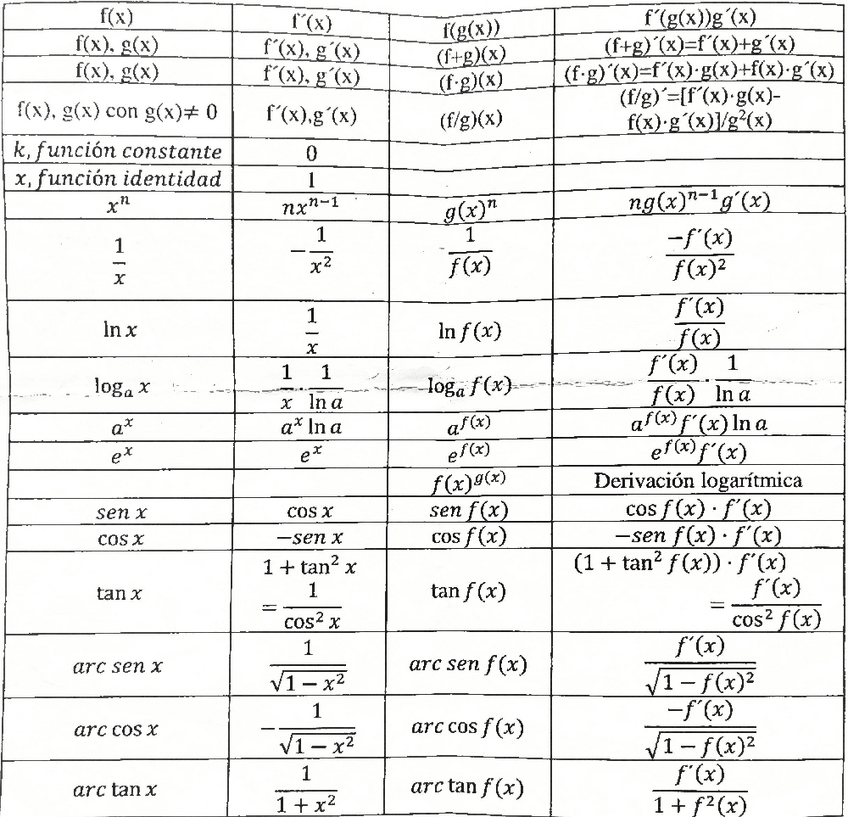 f(x) f´(x) f(g(x)) f´(g(x))g´(x)
f(x), g(x) f´(x), g´(x) (f+g)(x) (f+g)´(x)=f´(x)+g´(x)
f(x), g(x) f´(x), g´(x) (f·g)(x) (f·g)´(x)=f´(x)·g(x)+f(x)·g´(x)
f(x), g(x) con g(x)≠ 0 f´(x),g´(x) (f/g)(x) (f/g)´=[f´(x)·g(x)-
f(x)·g´(x)]/g²(x)
k, función constante 0
x, función identidad 1
xⁿ nxⁿ⁻¹ g(x)ⁿ ng(x)ⁿ⁻¹g´(x)
1/x −1/x² 1/f(x) −f´(x)/f(x)²
ln x 1/x ln f(x) f´(x)/f(x)
logₐ x 1/x · 1/ln a logₐ f(x) f´(x)/f(x) · 1/ln a
aˣ aˣ ln a a^f(x) a^f(x) f´(x) ln a
eˣ eˣ e^f(x) e^f(x) f´(x)
f(x)^g(x) Derivación logarítmica
sen x cos x sen f(x) cos f(x) · f´(x)
cos x −sen x cos f(x) −sen f(x) · f´(x)
tan x 1 + tan² x tan f(x) (1 + tan² f(x)) · f´(x)
= 1/cos² x = f´(x)/cos² f(x)
arc sen x 1/√(1 − x²) arc sen f(x) f´(x)/√(1 − f(x)²)
arc cos x −1/√(1 − x²) arc cos f(x) −f´(x)/√(1 − f(x)²)
arc tan x 1/(1 + x²) arc tan f(x) f´(x)/(1 + f²(x))